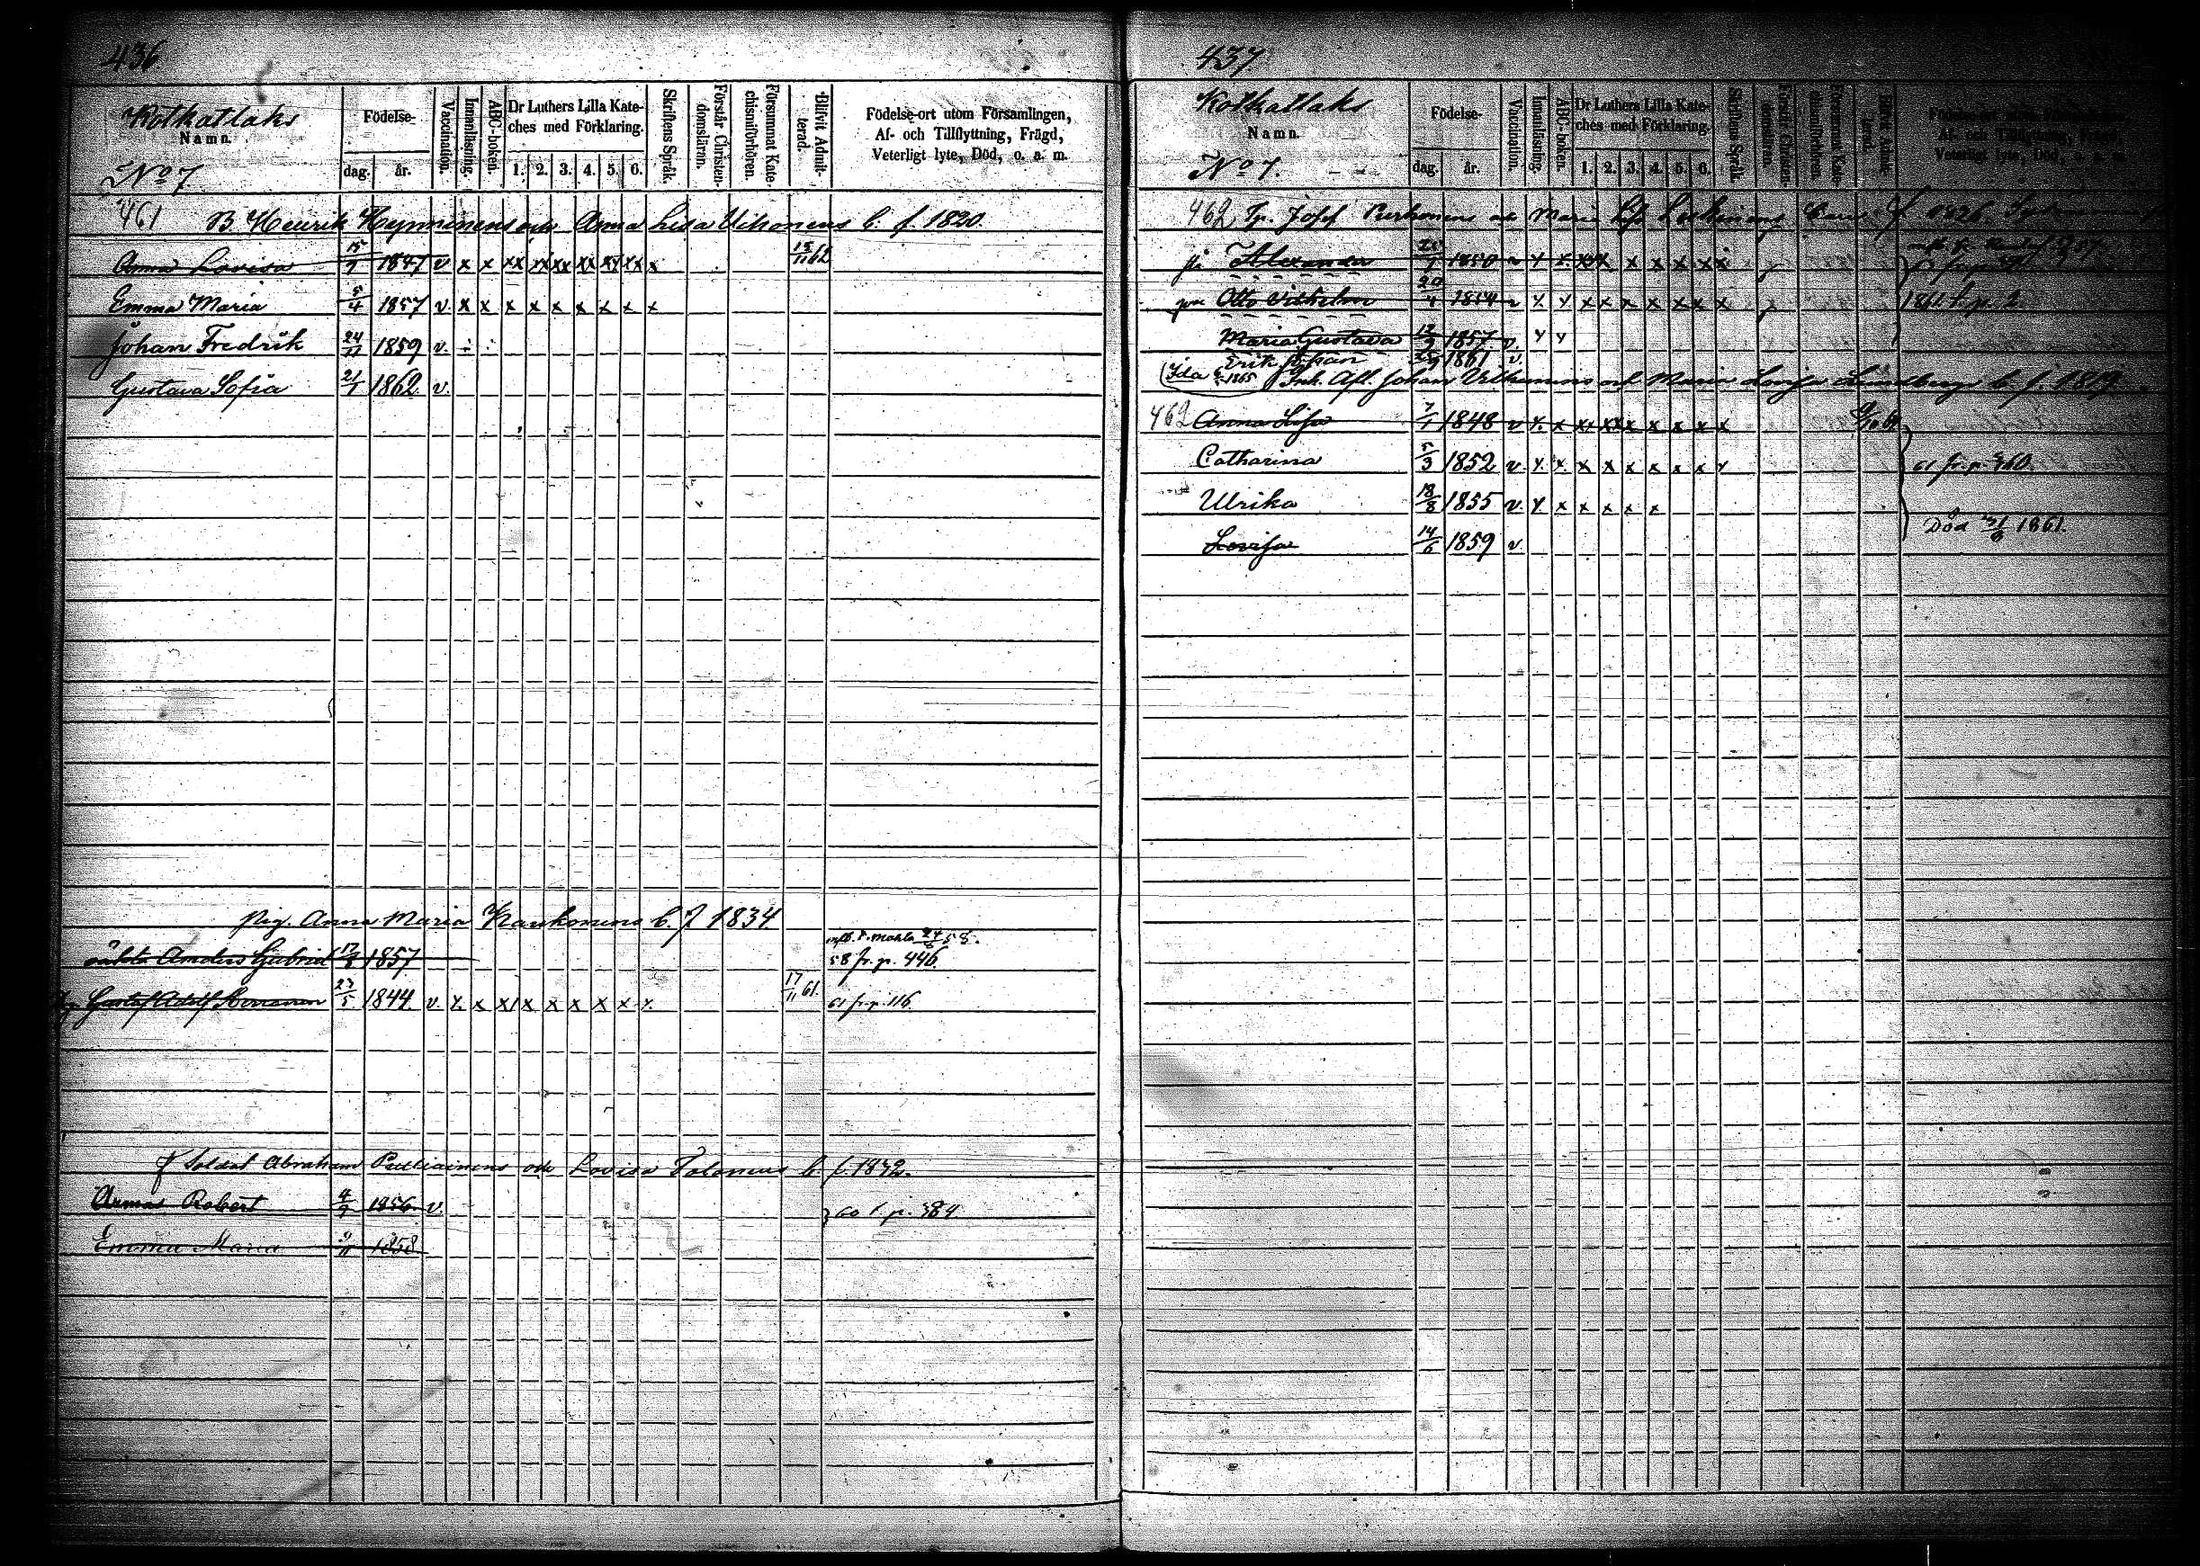 436
Kotkatlaks
Namn.
No 7.
Födelse-
dag. år.
Vaccination.
Innanläsning.
ABC-boken.
Dr Luthers Lilla Kate-
ches med Förklaring.
1. 2. 3. 4. 5. 6.
Skriftens Språk.
Förstår Christen-
domsläran.
Försummat Kate-
chismiförhören.
Blifvit Admit-
terad.
Födelse-ort utom Församlingen,
Af- och Tillflyttning, Frägd,
Veterligt lyte, Död, o. a. m.
461 B. Henrik Heynninens och Anna Lisa Uihonens b. f. 1820.
Anna Lovisa 15/7 1847 v x x xx xx xx xx xx xx x 15/11 62
Emma Maria 5/4 1857 v. x x x x x x x x x
Johan Fredrik 24/11 1859 v.
Gustava Sofia 21/1 1862 v.
Pig. Anna Maria Kaukonens b. f 1834
oäkta Anders Gabriel 17/8 1857 58 fr. p. 446.
Gustaf Adolf 23/5 1844 v. x x x x x x x x x 17/11 61. 61 fr. p. 116.
Soldat Abraham Pulliainens och Lovisa Tolonens b. f. 1842.
Robert 4/9 1856 v. 60 t. p. 384
Emma Maria 9/11 1858
437
Kotkatlaks
Namn.
No 7.
Födelse-
dag. år.
Vaccination.
Innanläsning.
ABC-boken.
Dr Luthers Lilla Kate-
ches med Förklaring.
1. 2. 3. 4. 5. 6.
Skriftens Språk.
Förstår Christen-
domsläran.
Försummat Kate-
chismiförhören.
Blifvit Admit-
terad.
Af- och Tillflyttning, Frägd,
Veterligt lyte, Död, o. a. m.
462 Tp. Josef Maria Lisa
Alexander 1850 v x x xx x x x x x x
Otto Vilhelm 20/4 1854 v x x x x x x x x x 1861 t. p. 2
Maria Gustava 12/9 1857 v. x x
Erik Johan 1861 v.
Ida 1865 Inh. Afl. Johan Vilhunens och Maria Lovisa Lundbergs b. f. 1819.
462 Anna Lisa 7/1 1848 v x x xx xx x x x x x
Catharina 5/3 1852 v x x x x x x x x x 61 fr. p. 360
Ulrika 18/8 1855 v. x x x x x x
Lovisa 14/6 1859 v Död 1861.